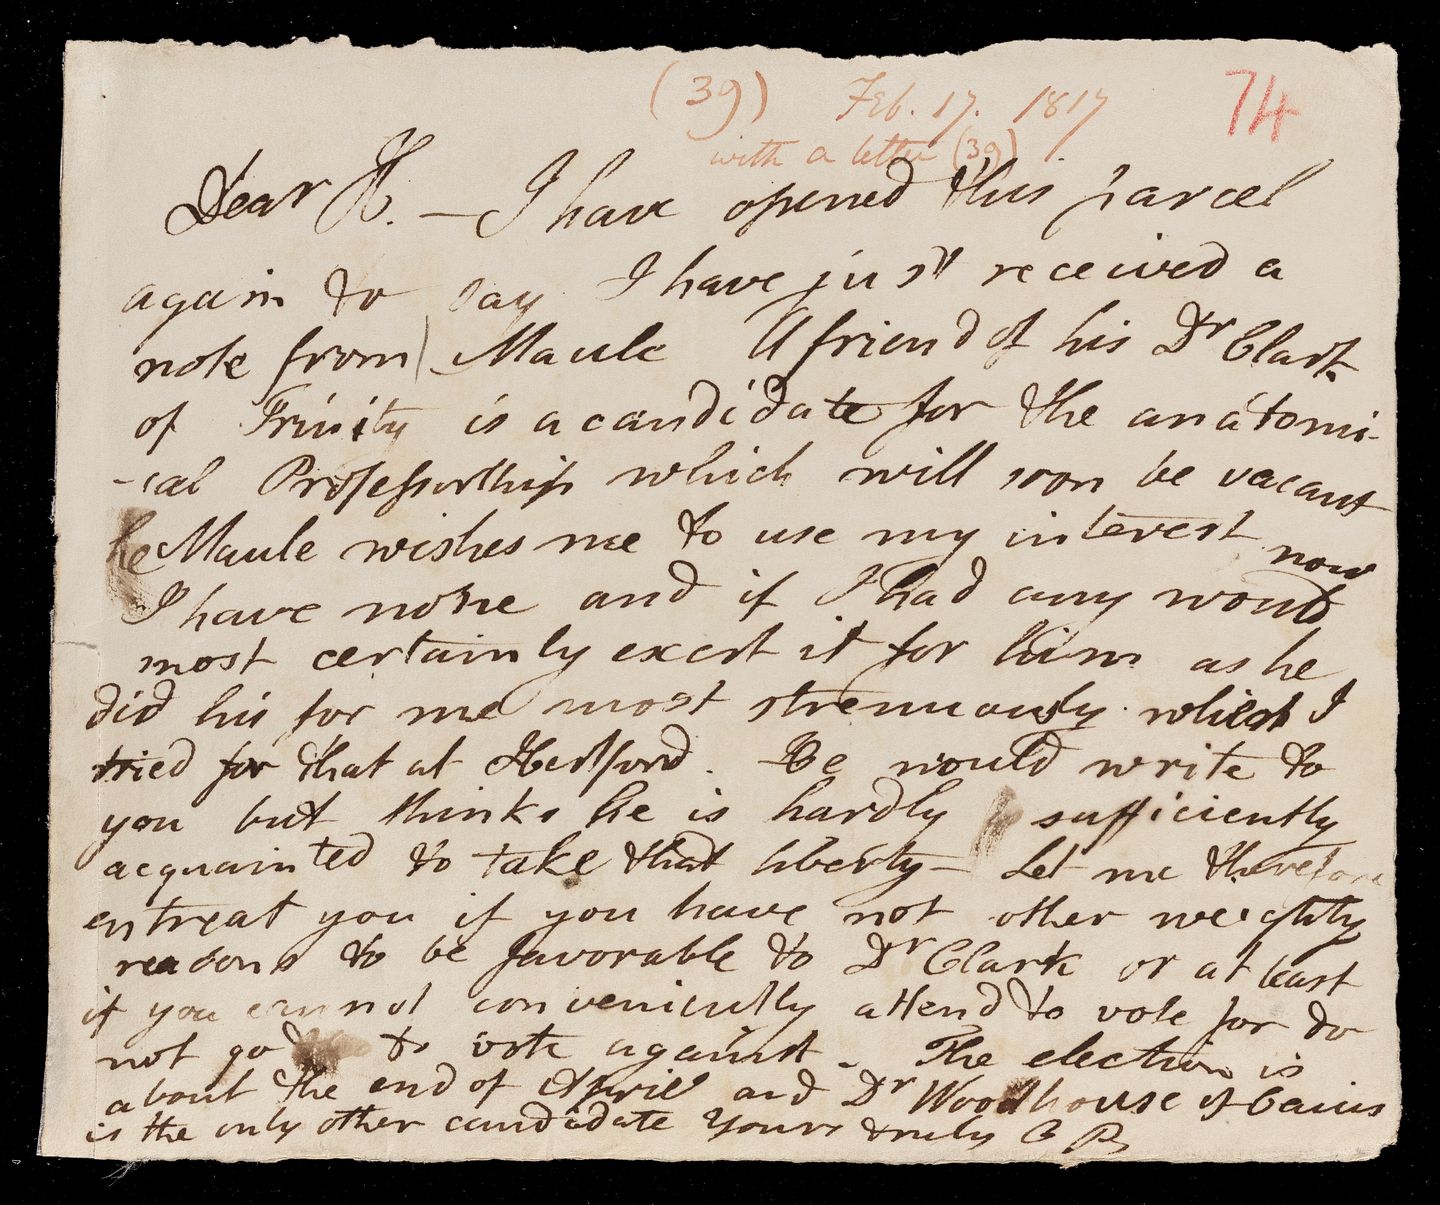 (39) Feb. 17. 1817 74
with a letter (39)
Dear H. — I have opened this parcel
again to say I have just received a
note from Maule A friend of his Dr Clark
of Trinity is a candidate for the anatomi-
-cal Professorship which will soon be vacant
he Maule wishes me to use my interest now
I have none and if I had any would
most certainly exert it for him as he
did his for me most strenuously whilst I
tried for that at Hertford. He would write to
you but thinks he is hardly sufficiently
acquainted to take that liberty — Let me therefore
entreat you if you have not other weighty
reasons to be favorable to Dr Clark or at least
if you cannot conveniently attend to vote for do
not go to vote against - The election is
about the end of April and Dr Woodhouse of Caius
is the only other candidate Yours truly C B